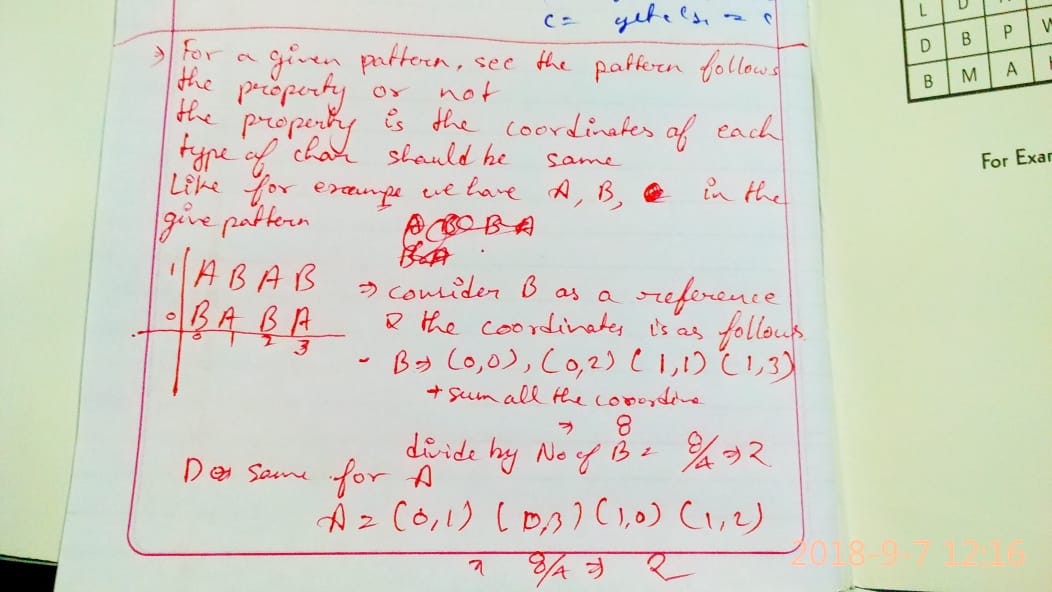 c =
L D
D B P
B M A
For Exam
→ For a given pattern, see the pattern follows
the property or not
the property is the coordinates of each
type of char should be same
Like for exampe we have A, B, in the
give pattern
1 A B A B
0 B A B A
0 1 2 3
⇒ consider B as a reference
& the coordinates is as follows.
- B ⇒ (0,0), (0,2) (1,1) (1,3)
→ sum all the
⇒ 8
divide by No of B = 8/4 ⇒ 2
Do same for A
A = (0,1) (0,3) (1,0) (1,2)
⇒ 8/4 ⇒ 2
2018-9-7 12:16